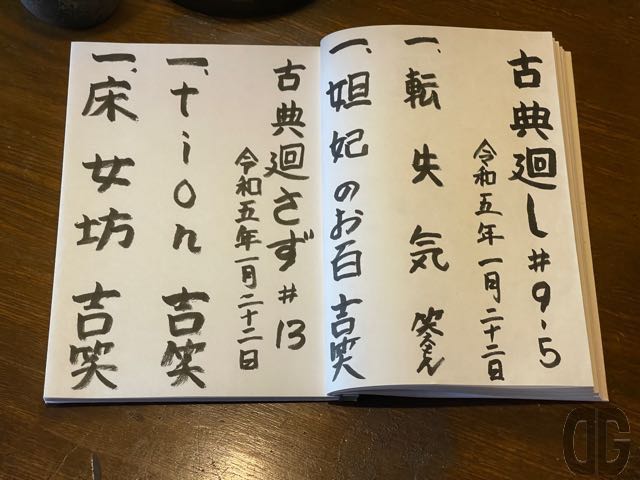 古典廻し#9.5
令和五年一月二十二日
一、転失気 笑えもん
一、妲妃のお百 吉笑
古典廻さず#13
令和五年一月二十二日
一、tion 吉笑
一、床女坊 吉笑
DG